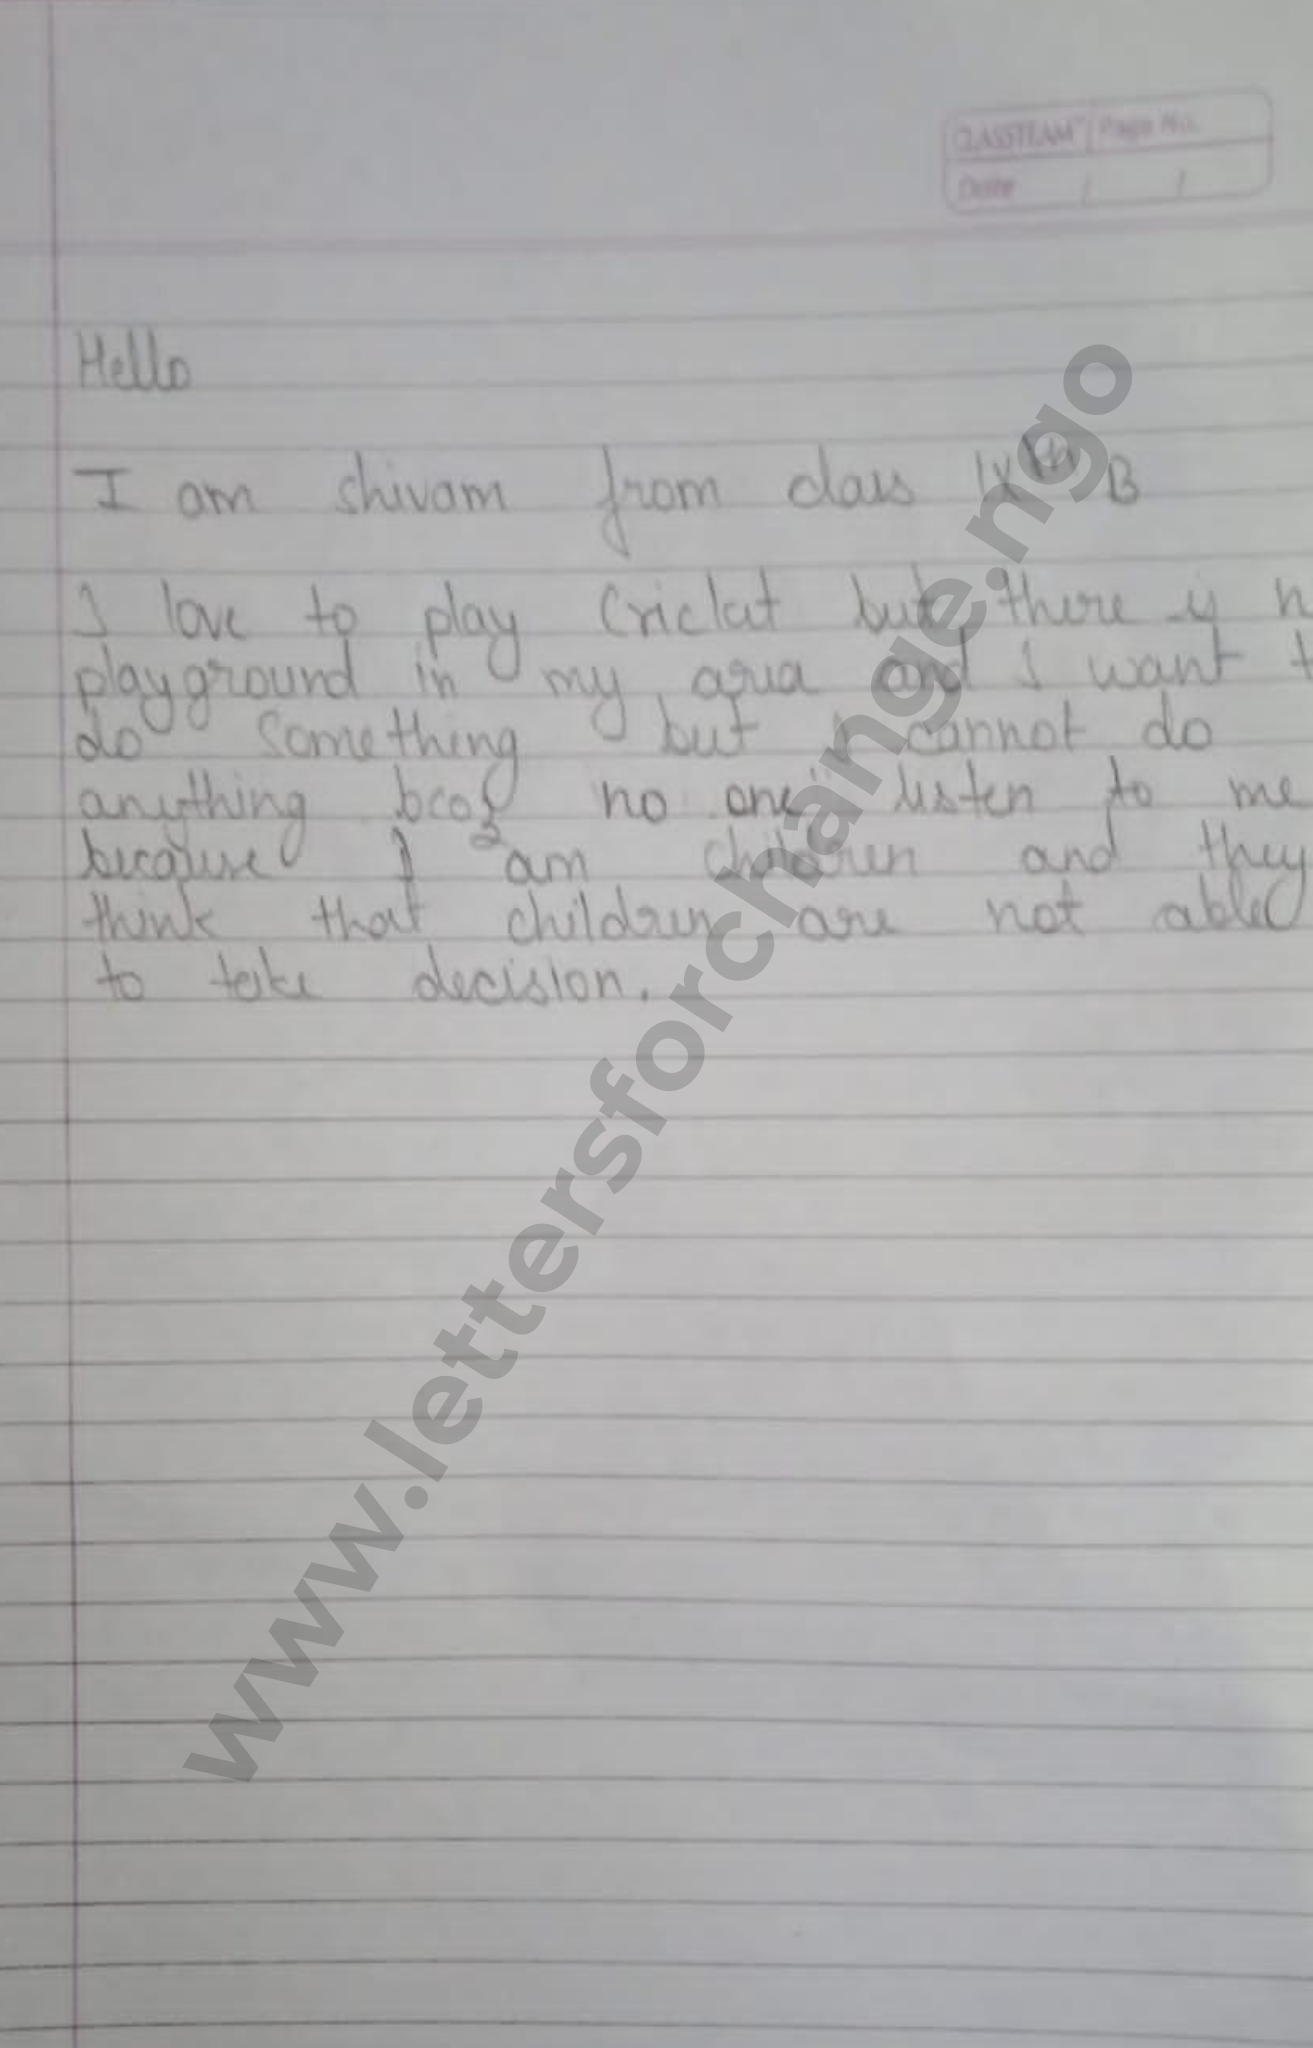 CLASSTEAM Page No.
Date / /
Hello
I am shivam from class IXth B
I love to play Criclat but there is n
playground in my area and I want t
do something but I cannot do
anything bcoz no one listen to me
because I am children and they
think that children are not able
to take decision.
www.lettersforchange.ngo